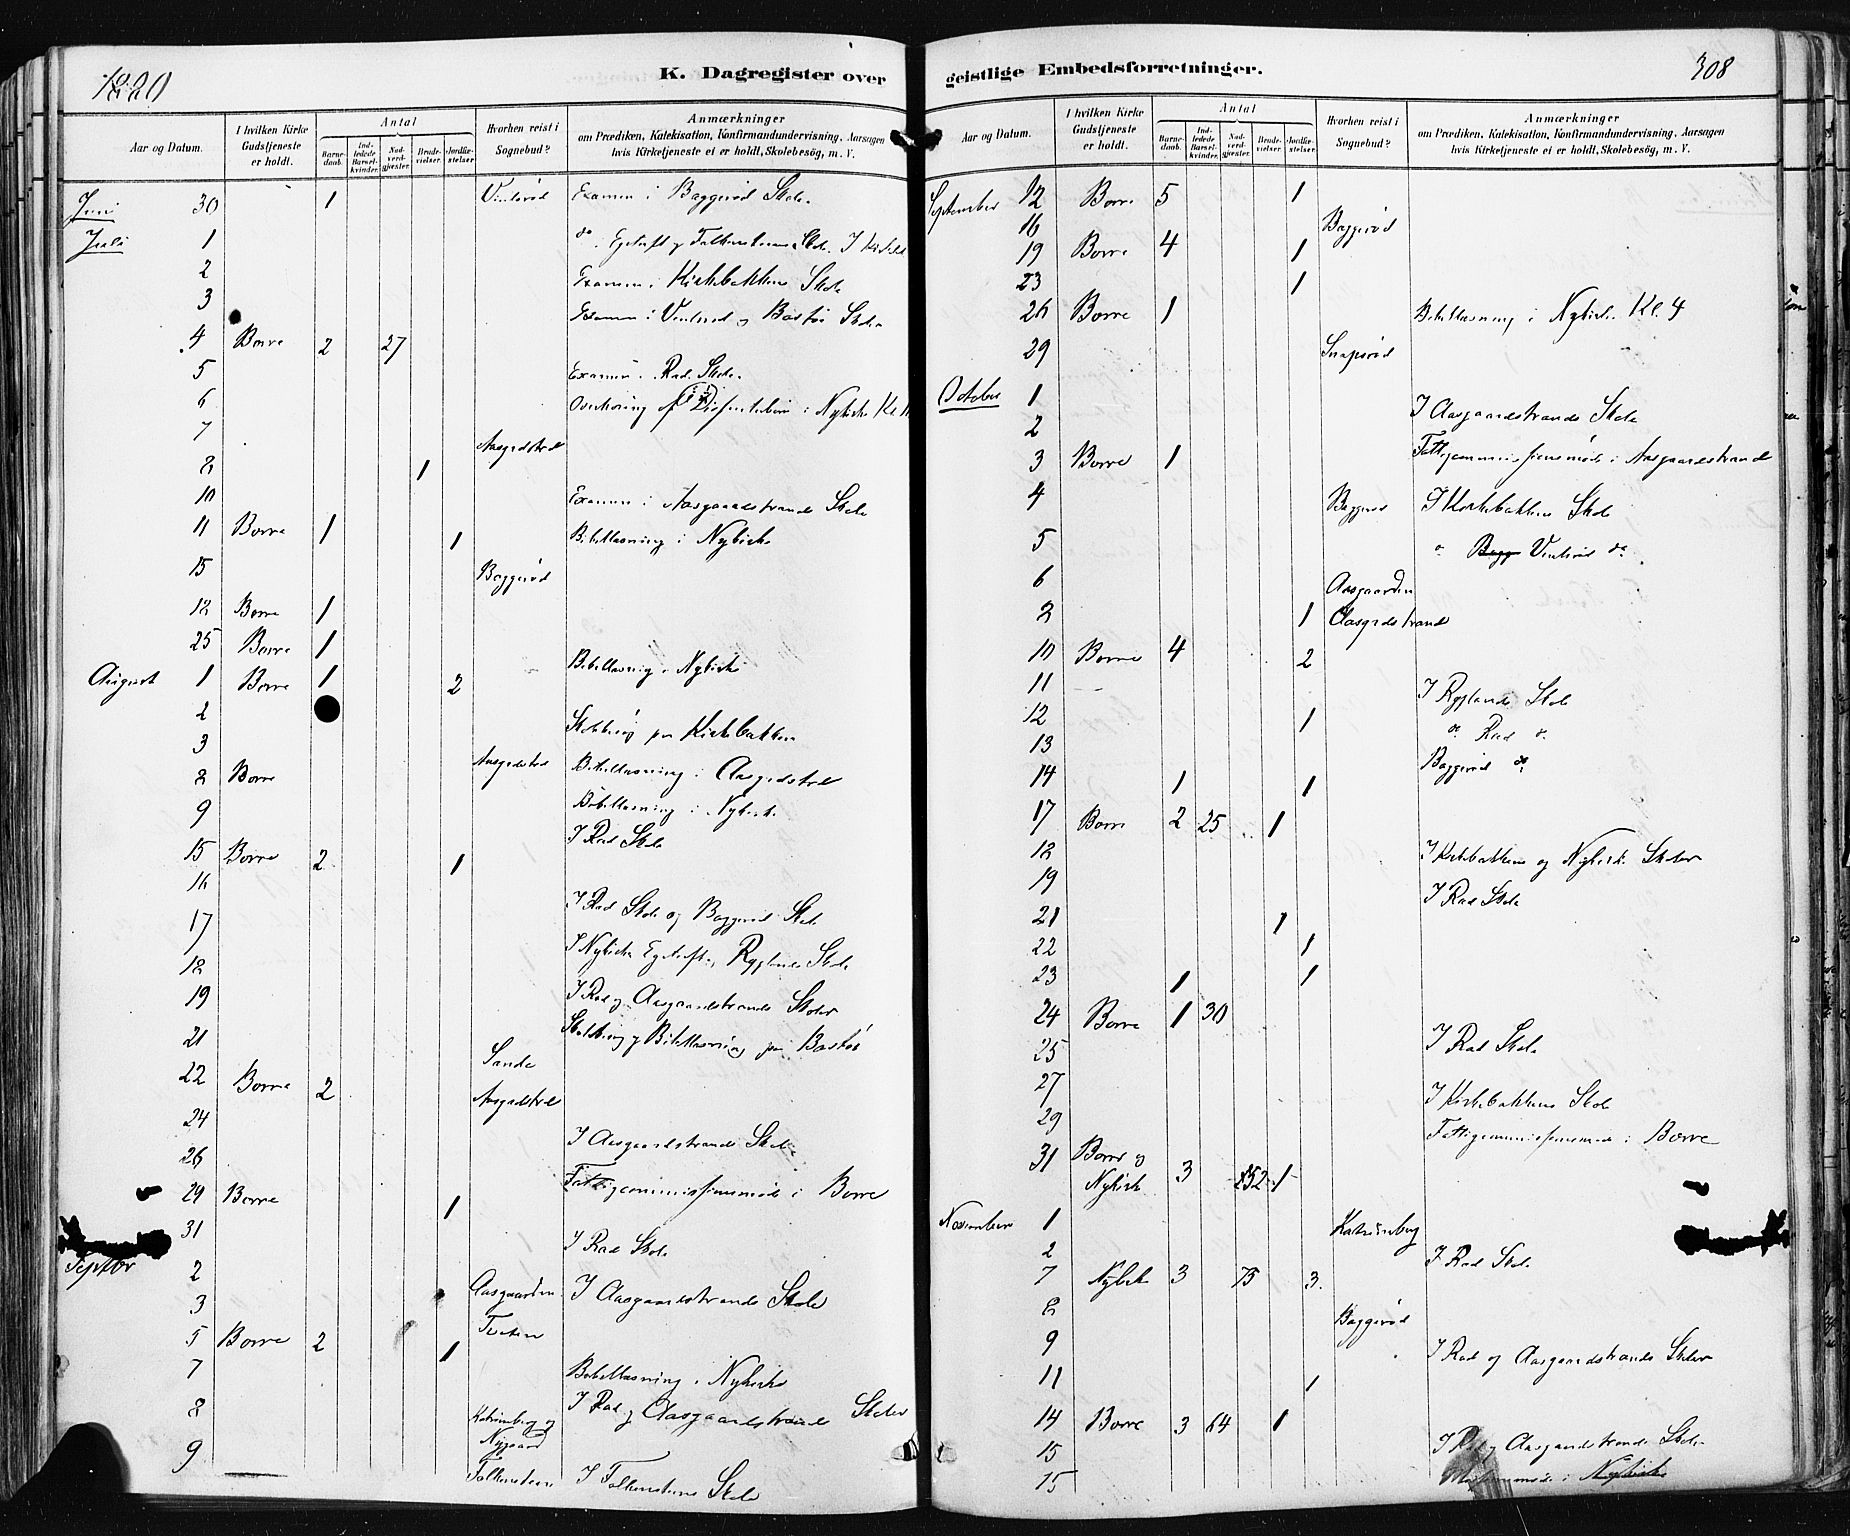 1880
K. Dagregister over
Aar og Datum. I hvilken Kirke Gudstjeneste er holdt. Antal Barnedaab. Indledede Barselkvinder. Nadverdgjester. Brudevielser. Jordfæstelser. Hvorhen reist i Sognebud? Anmærkninger om Prædiken, Katekisation, Konfirmandundervisning, Aarsagen hvis Kirketjeneste ei er holdt, Skolebesög, m. V.
Juni 30 1 Vinterød Examen i Baggerød Skole
Juli 1 do i Falkensteens Skole
2 Examen i Kirkebakkens Skole
3 Examen i Vinterød og Bastøe Skole
4 Borre 2 27
5 Examen i Rød Skole
6 Overhøring af i Nykirke
7 Aasgrdstrd
8 1
10 Examen i Aasgaardstrands Skole
11 Borre 1 1 Bibellæsning i Nykirke
15 Baggerød
18 Borre 1
25 Borre 1
August 1 Borre 1 2 Bibellæsning i Nykirke
2
3 paa Kirkebakken
8 Borre Aasgrdstrd Bibellæsning i Aasgrdstrd
9 Bibellæsning i Nykirke
15 Borre 2 1 I Rød Skole
16
17 I Rød Skole og Baggerød Skole
18 I Nykirke Skole
19 I Rød og Aasgaardstrands Skoler
21 og Bibellæsning paa Bastøe
22 Borre 2 Sande
24 Aasgrdstrd
26 I Aasgaardstrands Skole
29 Borre 1 Fattigcommissionsmøde i Borre
31
Septbr 2 I Rød Skole
3 Aasgaarden I Aasgaardstrands Skole
5 Borre 2 1
7 Bibellæsning i Nykirke
8 Katrineberg og Nygaard I Rød og Aasgaardstrands Skoler
9 Falkensteen I Falkensteens Skole
geistlige Embedsforretninger.
308
Aar og Datum. I hvilken Kirke Gudstjeneste er holdt. Antal Barnedaab. Indledede Barselkvinder. Nadverdgjester. Brudevielser. Jordfæstelser. Hvorhen reist i Sognebud? Anmærkninger om Prædiken, Katekisation, Konfirmandundervisning, Aarsagen hvis Kirketjeneste ei er holdt, Skolebesög, m. V.
September 12 Borre 5 1
16 Baggerød
19 Borre 4 1
23 1
26 Borre 1 Bibellæsning i Nykirke Kl. 4
29 Snapsrød
October 1 I Aasgaardstrands Skole
2
3 Borre 1 Fattigcommissionsmøde i Aasgaardstrand
4 Baggerød I Kirkebakkens Skole
5 Vinterød do
6 Aasgaarden
8 1 Aasgrdstrand
10 Borre 4 2
11 Skole
12 1 do Rød do
13
14 1 1 Baggerød do
17 Borre 2 25 1
18 I Kirkebakkens og Nykirke Skoler
19 I Rød Skole
21 1
22 1
23 1 1
24 Borre 1 30
25 I Rød Skole
27 I Kirkebakkens Skole
29 Fattigcommissionsmøde i Borre
31 Borre og Nykirke 3 152 1
November 1 Katrineberg
2 I Rød Skole
7 Nykirke 3 75 3
8 Baggerød
9 I Rød og Aasgaardstrands Skoler
11 1
14 Borre 3 64 1
15 I Rød og Aasgaardstrands Skole
15 i Nykirke